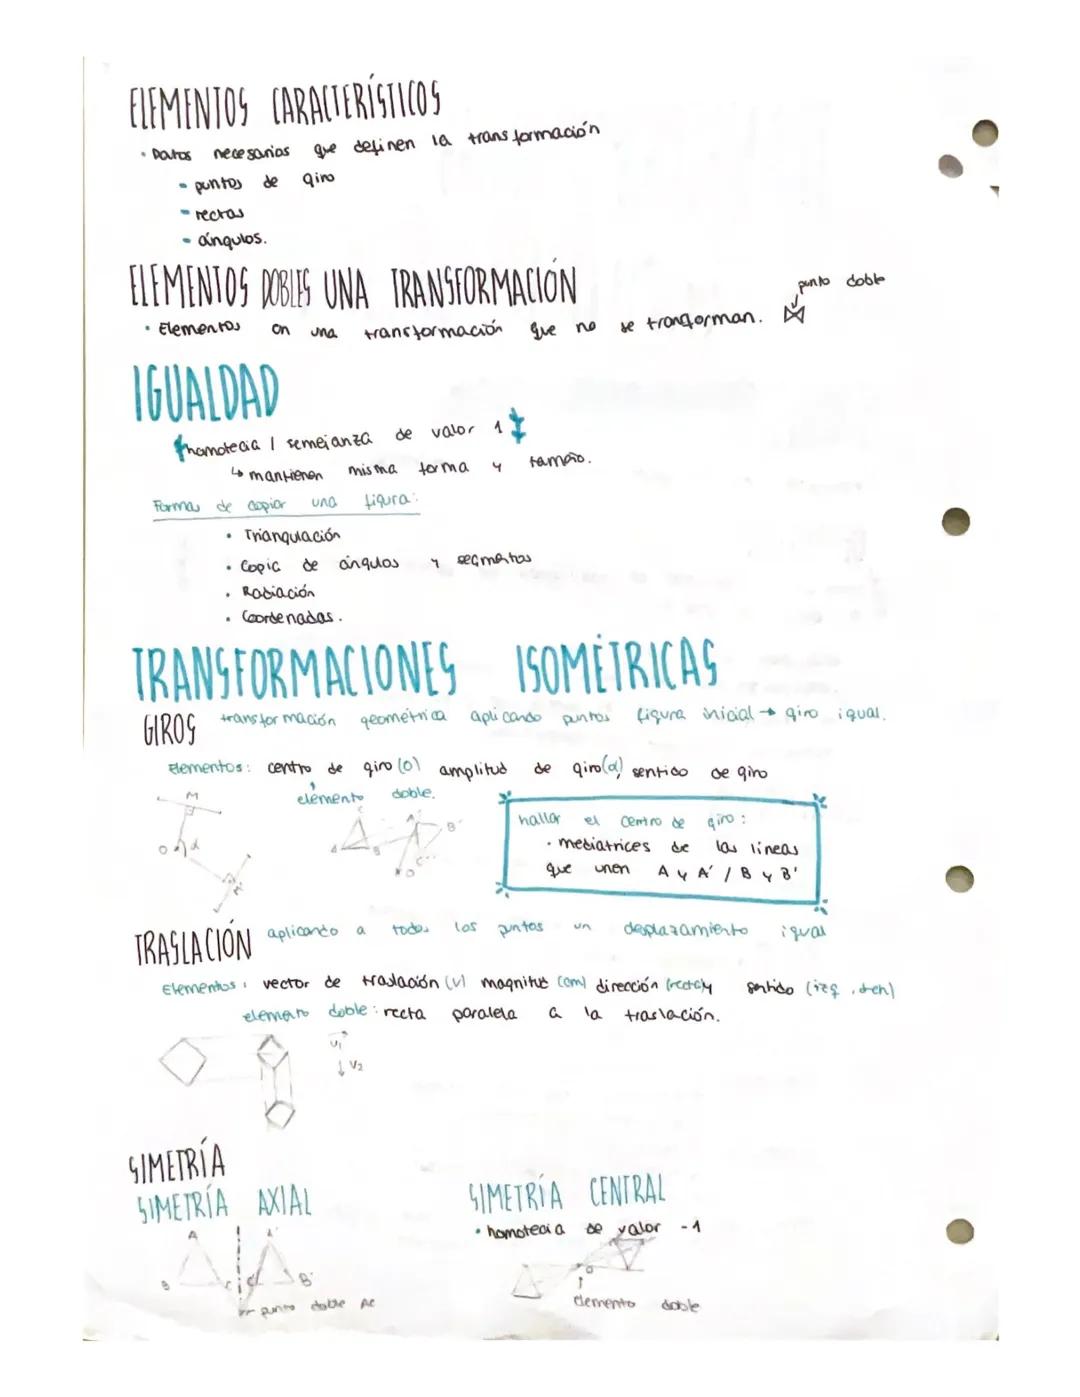 ELEMENTOS CARACTERÍSTICOS
• Datos necesarios que definen la transformación
- puntos de giro
- rectas
- ángulos.
ELEMENTOS DOBLES UNA TRANSFORMACIÓN
punto doble
• Elementos en una transformación que no se transforman.
IGUALDAD
homotecia / semejanza de valor 1
↳ mantienen misma forma y tamaño.
Formas de copiar una figura:
• Triangulación
• Copia de ángulos y segmentos
• Radiación
• Coordenadas.
TRANSFORMACIONES ISOMÉTRICAS
GIROS transformación geométrica aplicando puntos figura inicial → giro igual.
Elementos: centro de giro (O) amplitud de giro (α) sentido de giro
elemento doble.
M
O α
A'
A B A' B' C'' O
hallar el centro de giro:
• mediatrices de las líneas
que unen A y A' / B y B'
TRASLACIÓN aplicando a todos los puntos un desplazamiento igual
Elementos: vector de traslación (v) magnitud (cm) dirección (recta) y sentido (izq, der)
elemento doble: recta paralela a la traslación.
V1
↓ V2
SIMETRÍA
SIMETRÍA AXIAL
SIMETRÍA CENTRAL
• homotecia de valor -1
A A'
B C C' B'
punto doble
O
elemento doble